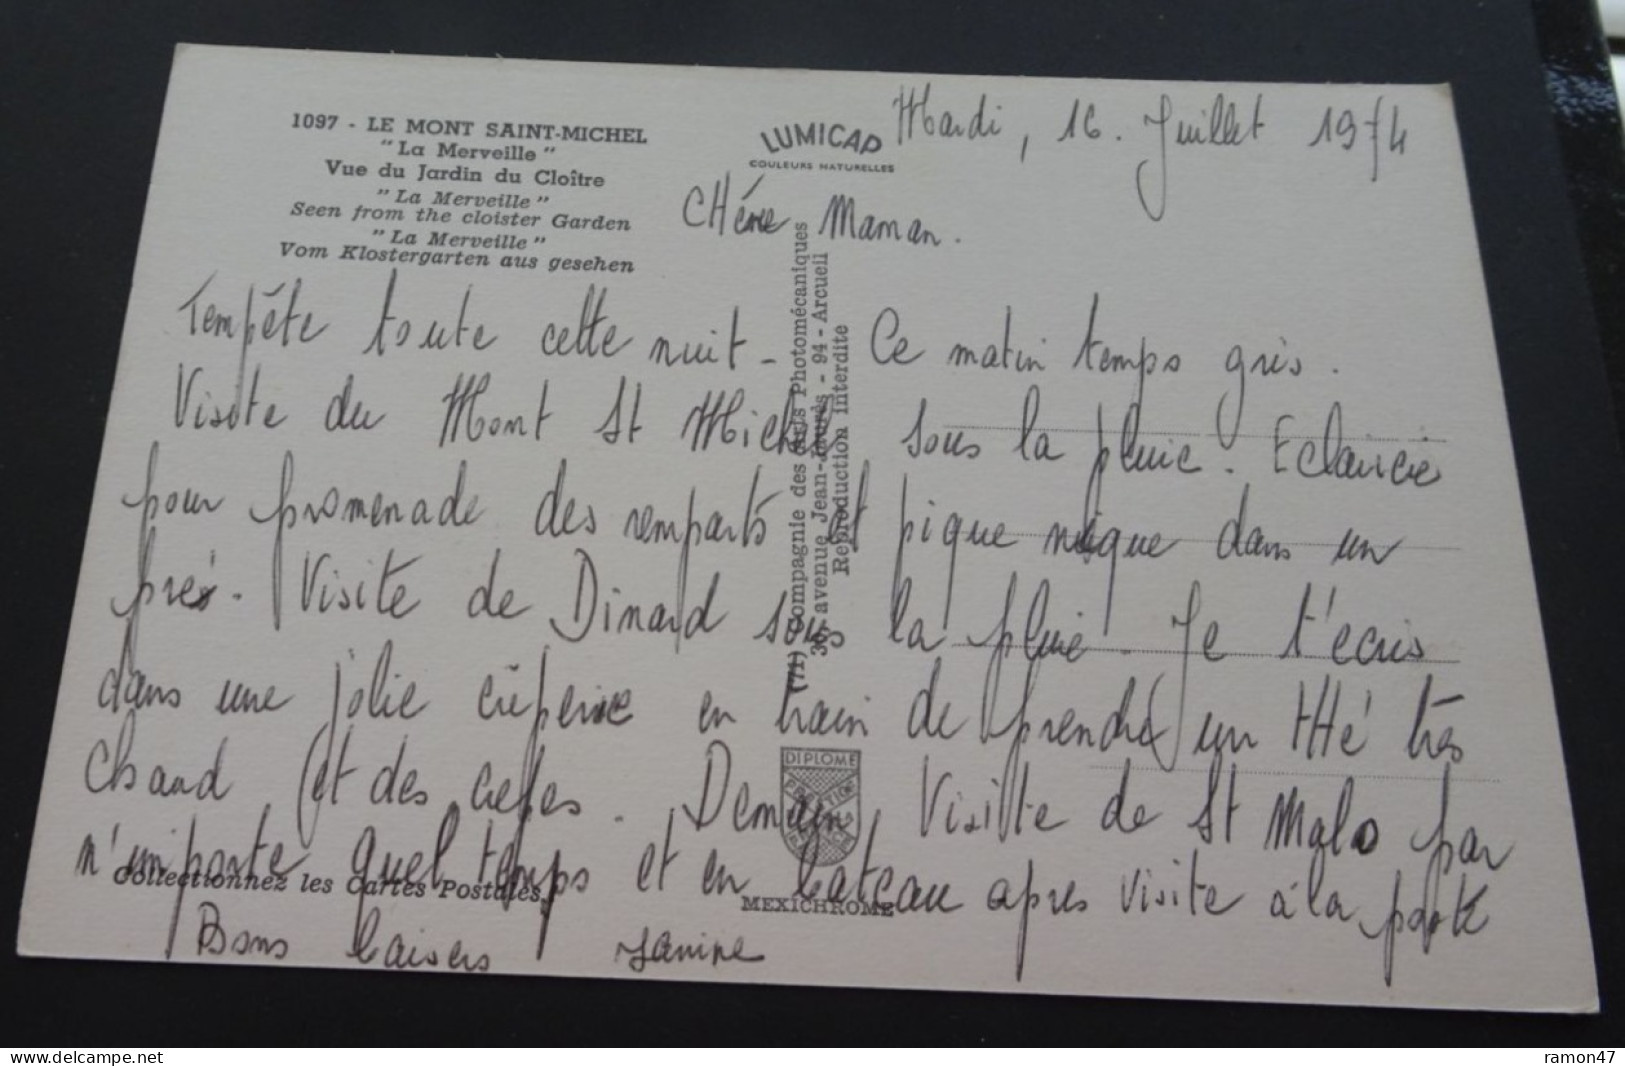 1097 - LE MONT SAINT-MICHEL
"La Merveille"
Vue du Jardin du Cloître
"La Merveille"
Seen from the cloister Garden
"La Merveille"
Vom Klostergarten aus gesehen
LUMICAP
COULEURS NATURELLES
Mardi, 16. Juillet 1974
CHére Maman.
Tempête toute cette nuit - Ce matin temps gris.
Visite du Mont St Michel sous la pluie. Eclaircie
pour promenade des remparts et pique nique dans un
pré. Visite de Dinard sous la pluie. Je t'ecris
dans une jolie crêperie en train de prendre un tHé très
chaud (et des crêpes. Demain, Visitte de St Malo par
n'importe quel temps et en bateau apres visite à la poste
Bons baisers Janine
(71) Compagnie des Arts Photomécaniques
avenue Jean-Jaurès - 94 - Arcueil
Reproduction interdite
DIPLOME
PRESTIGE
Collectionnez les Cartes Postales.
MEXICHROME
delcampe.net
ramon47